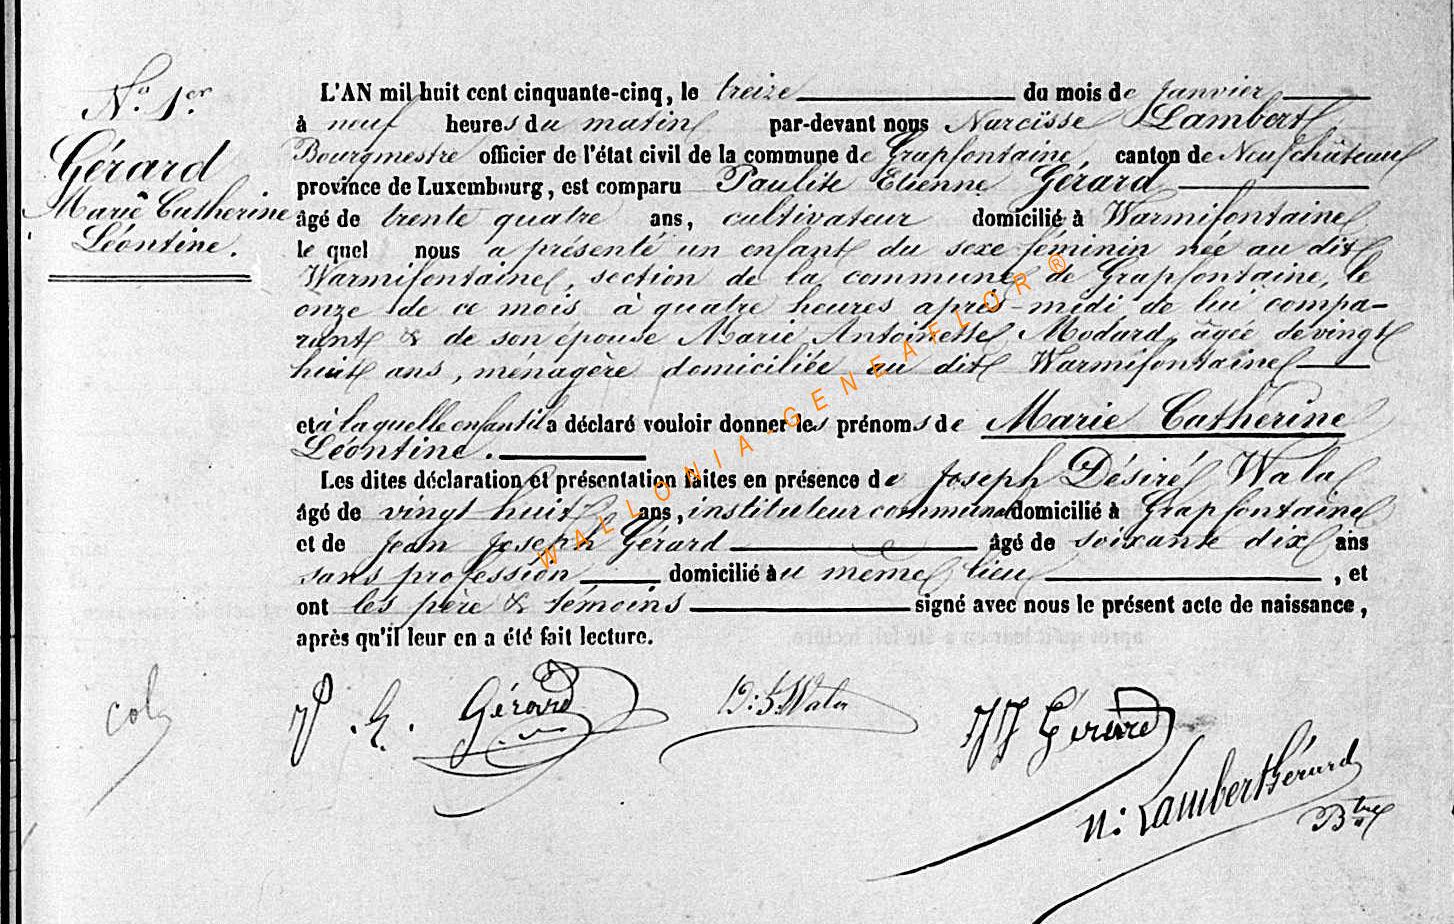 No. 1er
Gérard
Marie Catherine
Léontine.
L'AN mil huit cent cinquante-cinq, le treize du mois de janvier
à neuf heures du matin par-devant nous Narcisse Lambert
Bourgmestre officier de l'état civil de la commune de Grapfontaine, canton de Neufchâteau
province de Luxembourg, est comparu Paulite Etienne Gérard
âgé de trente quatre ans, cultivateur domicilié à Warmifontaine
le quel nous a présenté un enfant du sexe féminin née au dit
Warmifontaine, section de la commune de Grapfontaine, le
onze de ce mois à quatre heures après-midi de lui compa-
rant & de son épouse Marie Antoinette Modard, âgée de vingt
huit ans, ménagère domiciliée au dit Warmifontaine
et à la quelle enfant il a déclaré vouloir donner les prénoms de Marie Catherine
Léontine.
Les dites déclaration et présentation faites en présence de Joseph Désiré Wala
âgé de vingt huit ans, instituteur communal domicilié à Grapfontaine
et de Jean Joseph Gérard âgé de soixante dix ans
sans profession domicilié au même lieu, et
ont les père & témoins signé avec nous le présent acte de naissance,
après qu'il leur en a été fait lecture.
P. E. Gérard
JJ Gérard
N: Lambert Gérard
Btre
WALLONIA-GENEAFLOR®